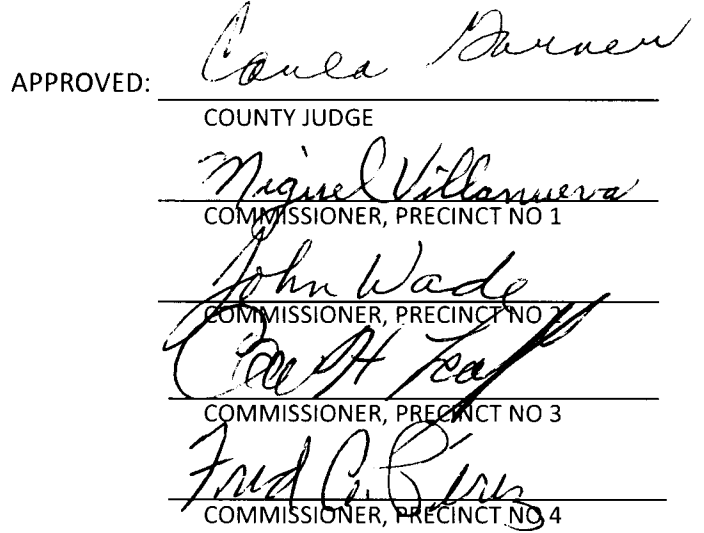 APPROVED: Carla Garner
COUNTY JUDGE
Miguel Villanueva
COMMISSIONER, PRECINCT NO 1
John Wade
COMMISSIONER, PRECINCT NO 2
H
COMMISSIONER, PRECINCT NO 3
Fred C. Perez
COMMISSIONER, PRECINCT NO 4